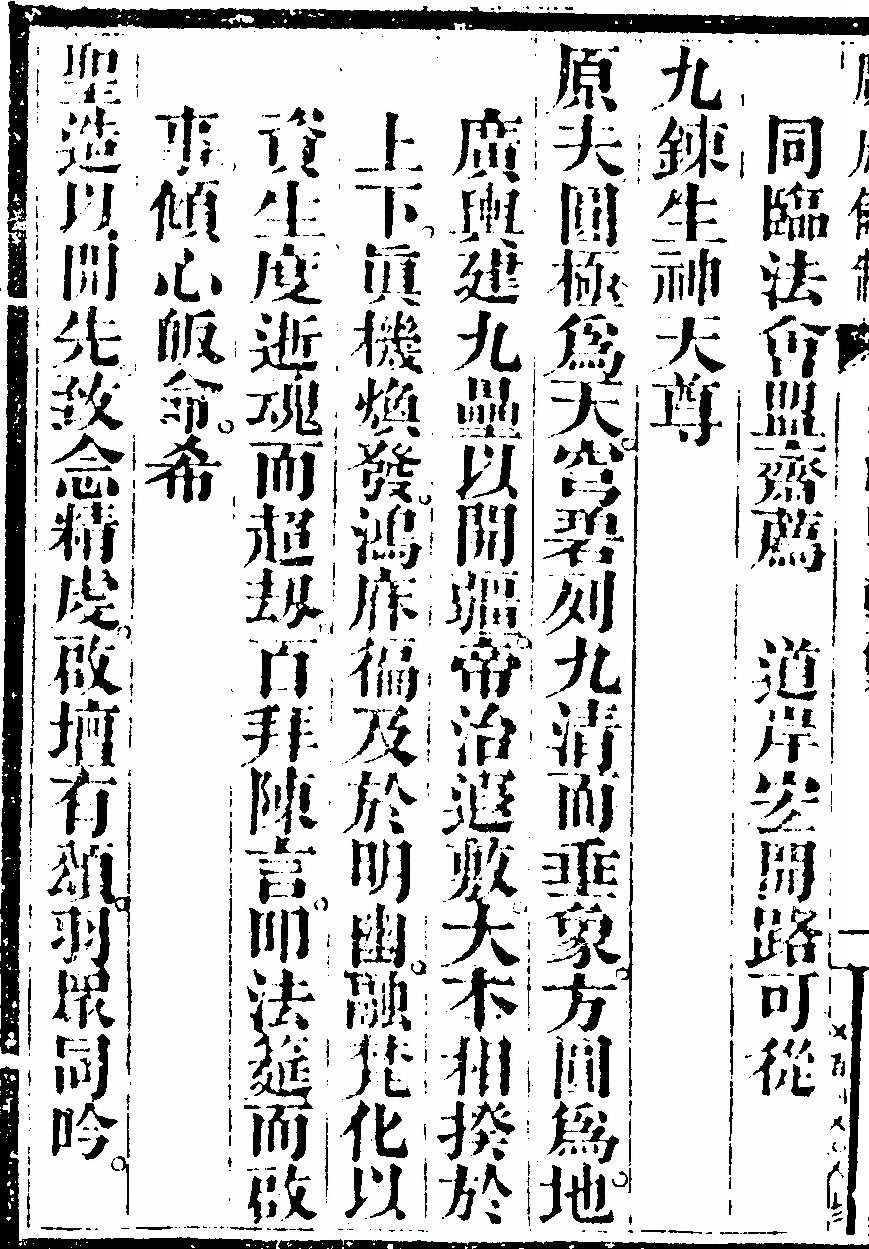 同臨法會盟齋薦　道岸宏開路可從
九鍊生神天尊
原夫圓極為天。穹碧列九清而垂象。方圓為地。
廣輿建九壘以開疆。帝治遐敷。大本相揆於
上下。眞機煥發。鴻庥徧及於明幽。融梵化以
資生度逝魂而超劫。百拜陳言。叩法筵而啟
事傾心皈命。希
聖造以開先致念精虔。啟壇有頌。羽眾同吟。